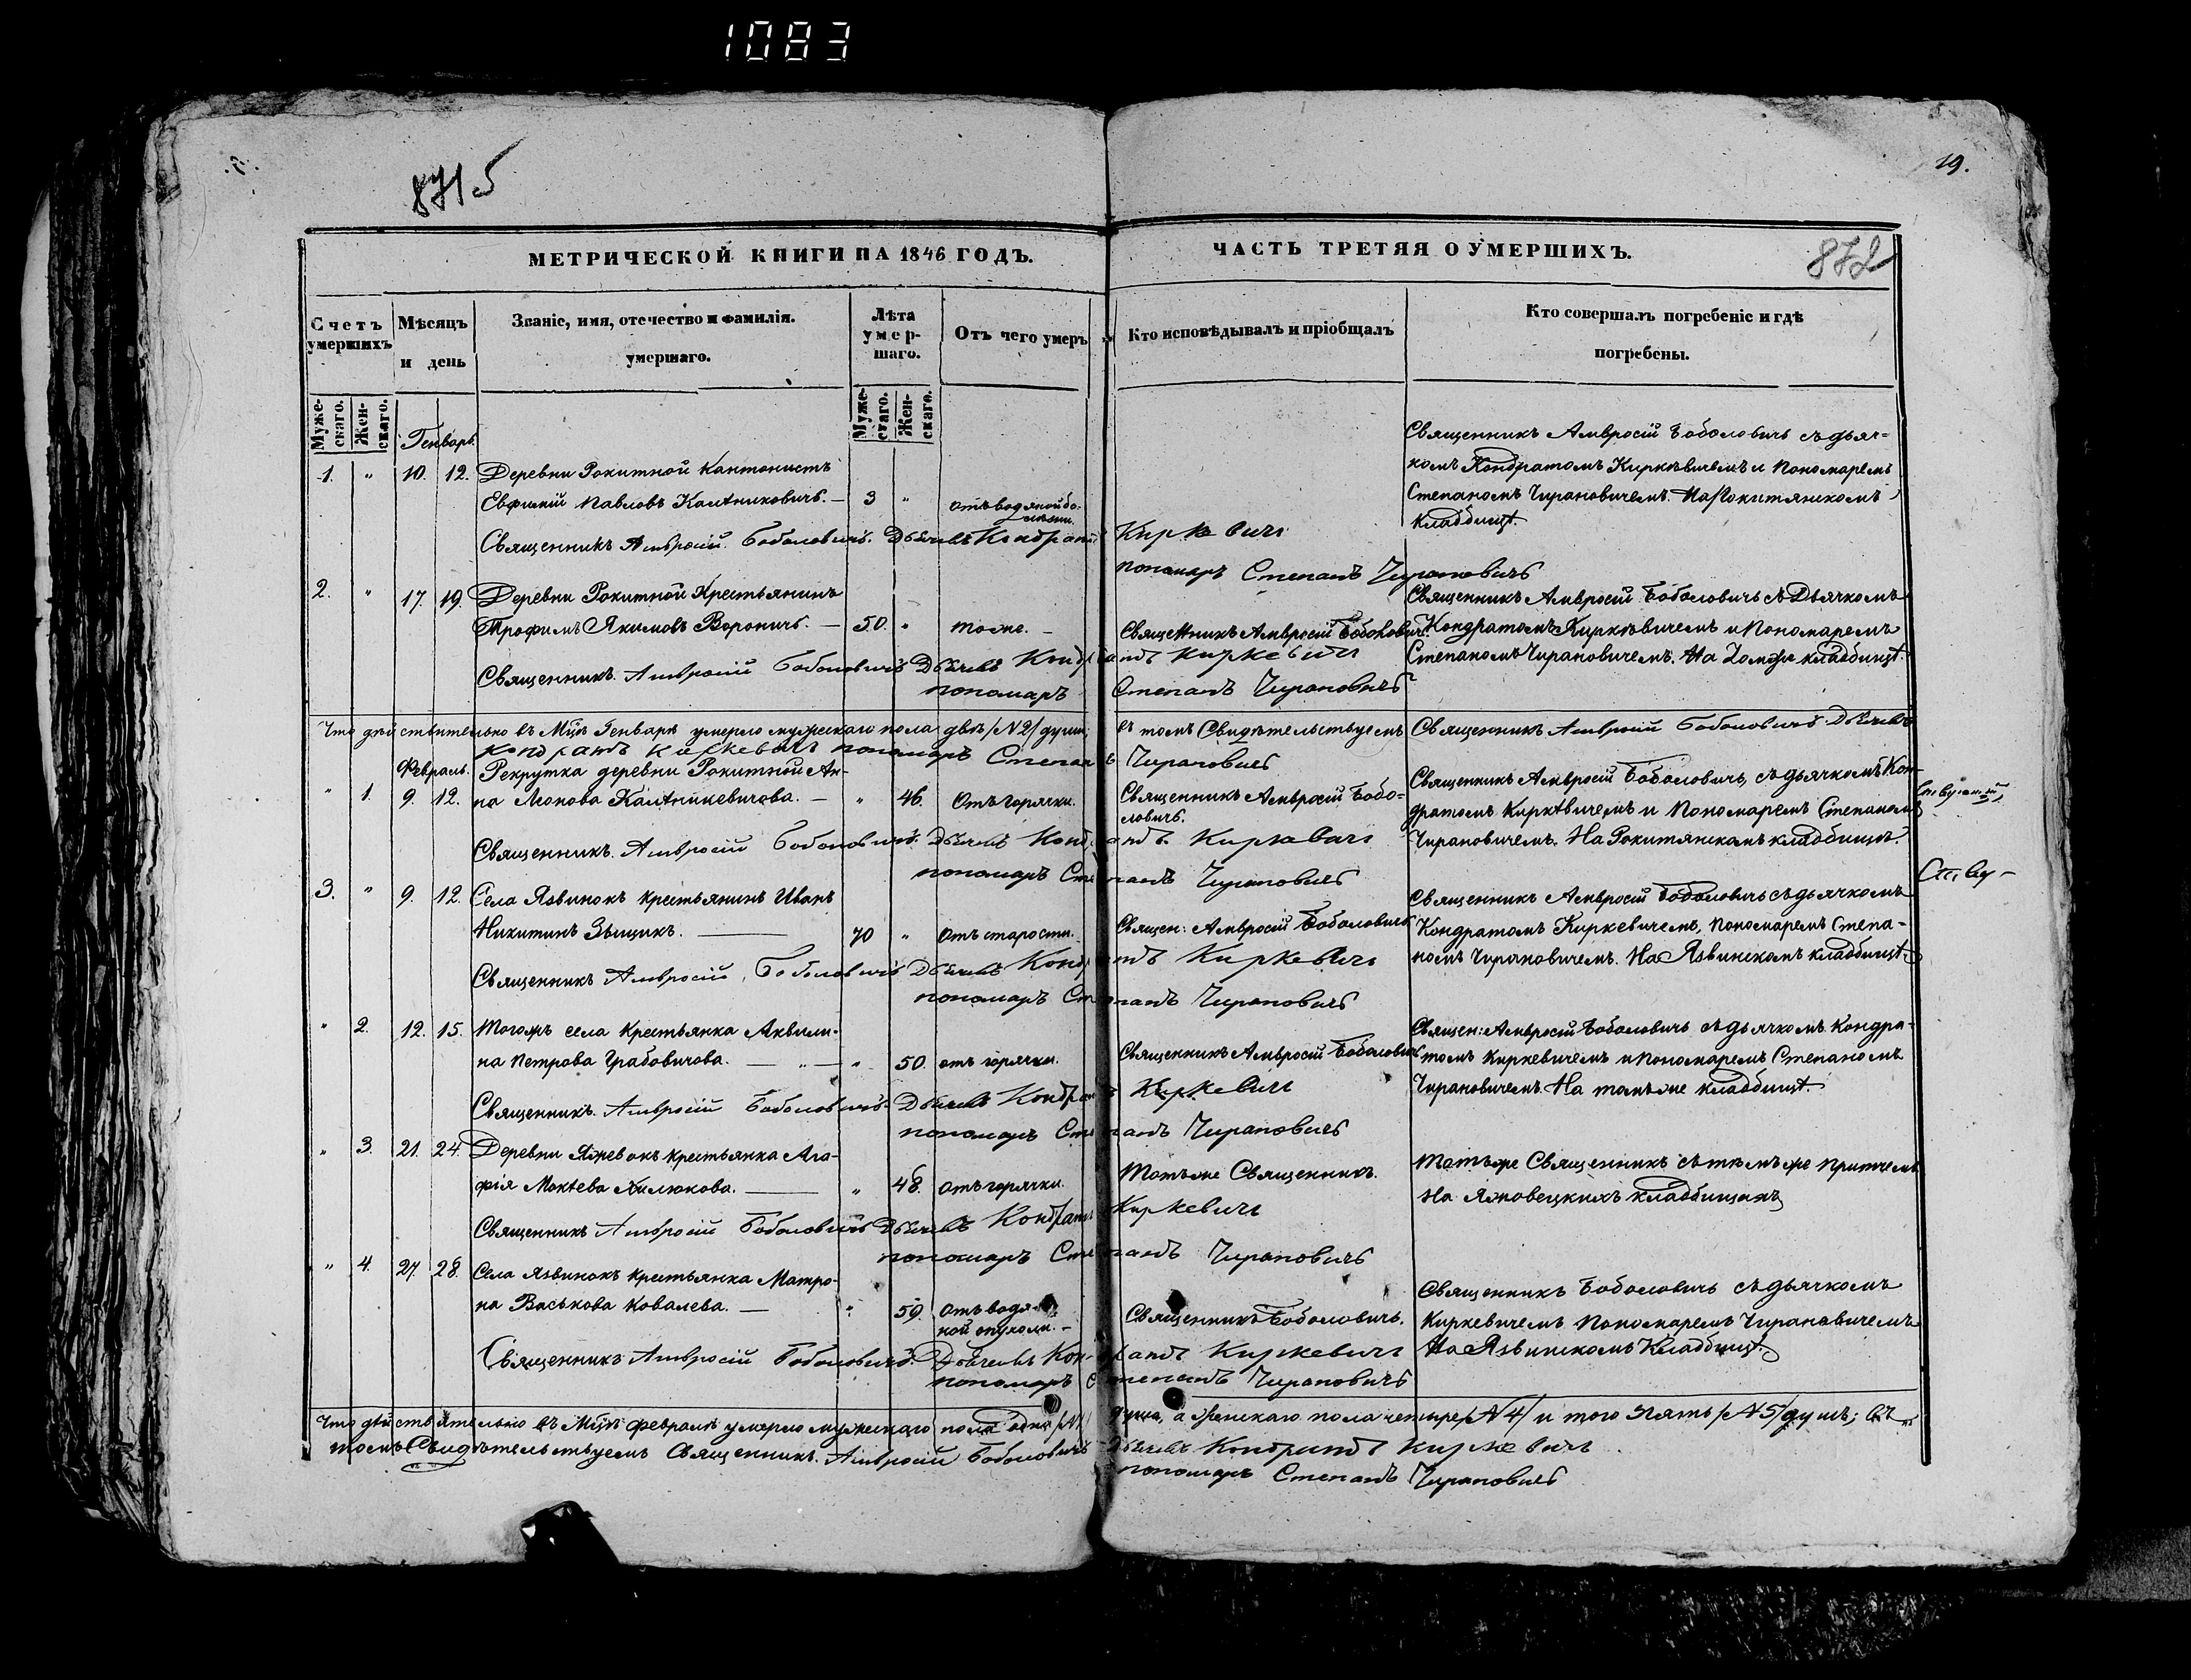 1083
8715
19.
МЕТРИЧЕСКОЙ КНИГИ НА 1846 ГОДЪ.
ЧАСТЬ ТРЕТЯЯ О УМЕРШИХЪ.
872
Счетъ умершихъ
Мѣсяцъ и день
Званіе, имя, отечество и фамилія.
умершаго.
Лѣта умершаго.
Отъ чего умеръ
Кто исповѣдывалъ и пріобщалъ
Кто совершалъ погребеніе и гдѣ
погребены.
Мужескаго.
Женскаго.
Мужескаго.
Женскаго.
Генварь.
1. " 10. 12. Деревни Рокитной Кантонистъ
Евфимій Павловъ Калтниковичъ. — 3 " отъ водяной бо-
лѣзни.
Священникъ Амвросій Боболовичъ съ дьяч=
комъ Кондратомъ Киркѣвичемъ и Пономаремъ
Степаномъ Чирановичемъ. На Рокитянскомъ
кладбищѣ.
Священникъ Амвросій Боболовичъ. Дьячекъ Кондратъ Киркевичъ
пономаръ Степанъ Чирановичъ
2. " 17. 19. Деревни Рокитной Крестьянинъ
Трофимъ Якимовъ Вороничъ. — 50. " тоже. —
Священникъ Амвросій Боболович.
Священникъ Амвросій Боболовичъ съ Дьячкомъ
Кондратомъ Киркѣвичемъ и Пономаремъ
Степаномъ Чирановичемъ. На томже кладбищѣ.
Священникъ. Амвросій Боболовичъ Дьячекъ Кондратъ Киркевичъ
пономаръ Степанъ Чирановичъ
Что дѣйствительно въ Мцѣ Генварѣ умерло мужескаго пола двѣ /№2/ души; въ томъ Свидѣтельствуемъ Священникъ Амвросій Боболовичъ Дьячекъ
Кондратъ Киркевичъ пономаръ Степанъ Чирановичъ
Февраль.
" 1. 9. 12. Рекрутка деревни Рокитной Ан-
на Леонова Калтникевичова. — " 46. Отъ горячки.
Священникъ Амвросій Бобо-
ловичъ.
Священникъ Амвросій Боболовичъ, съ дьячкомъ Кон-
дратомъ Киркѣвичемъ и Пономаремъ Степаномъ
Чирановичемъ. На Рокитянскомъ кладбищѣ.
Священникъ. Амвросій Боболовичъ. Дьячекъ Кондратъ Киркевичъ
пономаръ Степанъ Чирановичъ
3. " 9. 12. Села Язвинокъ крестьянинъ Иванъ
Никитинъ Зыщикъ. — 70 " Отъ старости.
Священ: Амвросій Боболовичъ
Священникъ Амвросій Боболовичъ съ дьячкомъ
Кондратомъ Киркевичемъ, Пономаремъ Степа-
номъ Чирановичемъ. На Язвинскомъ кладбищѣ.
Священникъ Амвросій Боболовичъ Дьячекъ Кондратъ Киркевичъ
пономаръ Степанъ Чирановичъ
" 2. 12. 15. Тогожъ села Крестьянка Аквили-
на Петрова Грабовичова. — " — " 50. отъ горячки.
Священникъ Амвросій Боболович
Священ: Амвросій Боболовичъ съ дьячкомъ Кондра-
томъ Киркевичемъ и Пономаремъ Степаномъ
Чирановичемъ. На томъже кладбищѣ.
Священникъ. Амвросій Боболовичъ. Дьячекъ Кондратъ Киркевичъ
пономаръ Степанъ Чирановичъ
" 3. 21. 24. Деревни Яжевокъ крестьянка Ага-
фія Мокѣева Хилюкова. — " 48. Отъ горячки.
Тотъже Священникъ.
Тотъже Священникъ съ тѣмъже притчемъ
На Яжовецкихъ кладбищахъ
Священникъ Амвросій Боболовичъ Дьячекъ Кондратъ Киркевичъ
пономаръ Степанъ Чирановичъ
" 4. 27. 28. Села Язвинокъ крестьянка Матро-
на Васькова Ковалева. — " 59. Отъ водя-
ной опухоли. —
Священникъ Боболовичъ.
Священникъ Боболовичъ съ дьячкомъ
Киркевичемъ Пономаремъ Чирановичемъ
На Язвинскомъ Кладбищѣ.
Священникъ Амвросій Боболовичъ. Дьячекъ Кондратъ Киркевичъ
пономаръ Степанъ Чирановичъ
Что дѣйствительно въ Мцѣ февралѣ умерло мужескаго пола одна душа, а женскаго пола четыре /№4/ и того Пять /№5/ душъ; въ
томъ Свидѣтельствуемъ Священникъ. Амвросій Боболовичъ Дьячекъ Кондратъ Киркевичъ
пономаръ Степанъ Чирановичъ